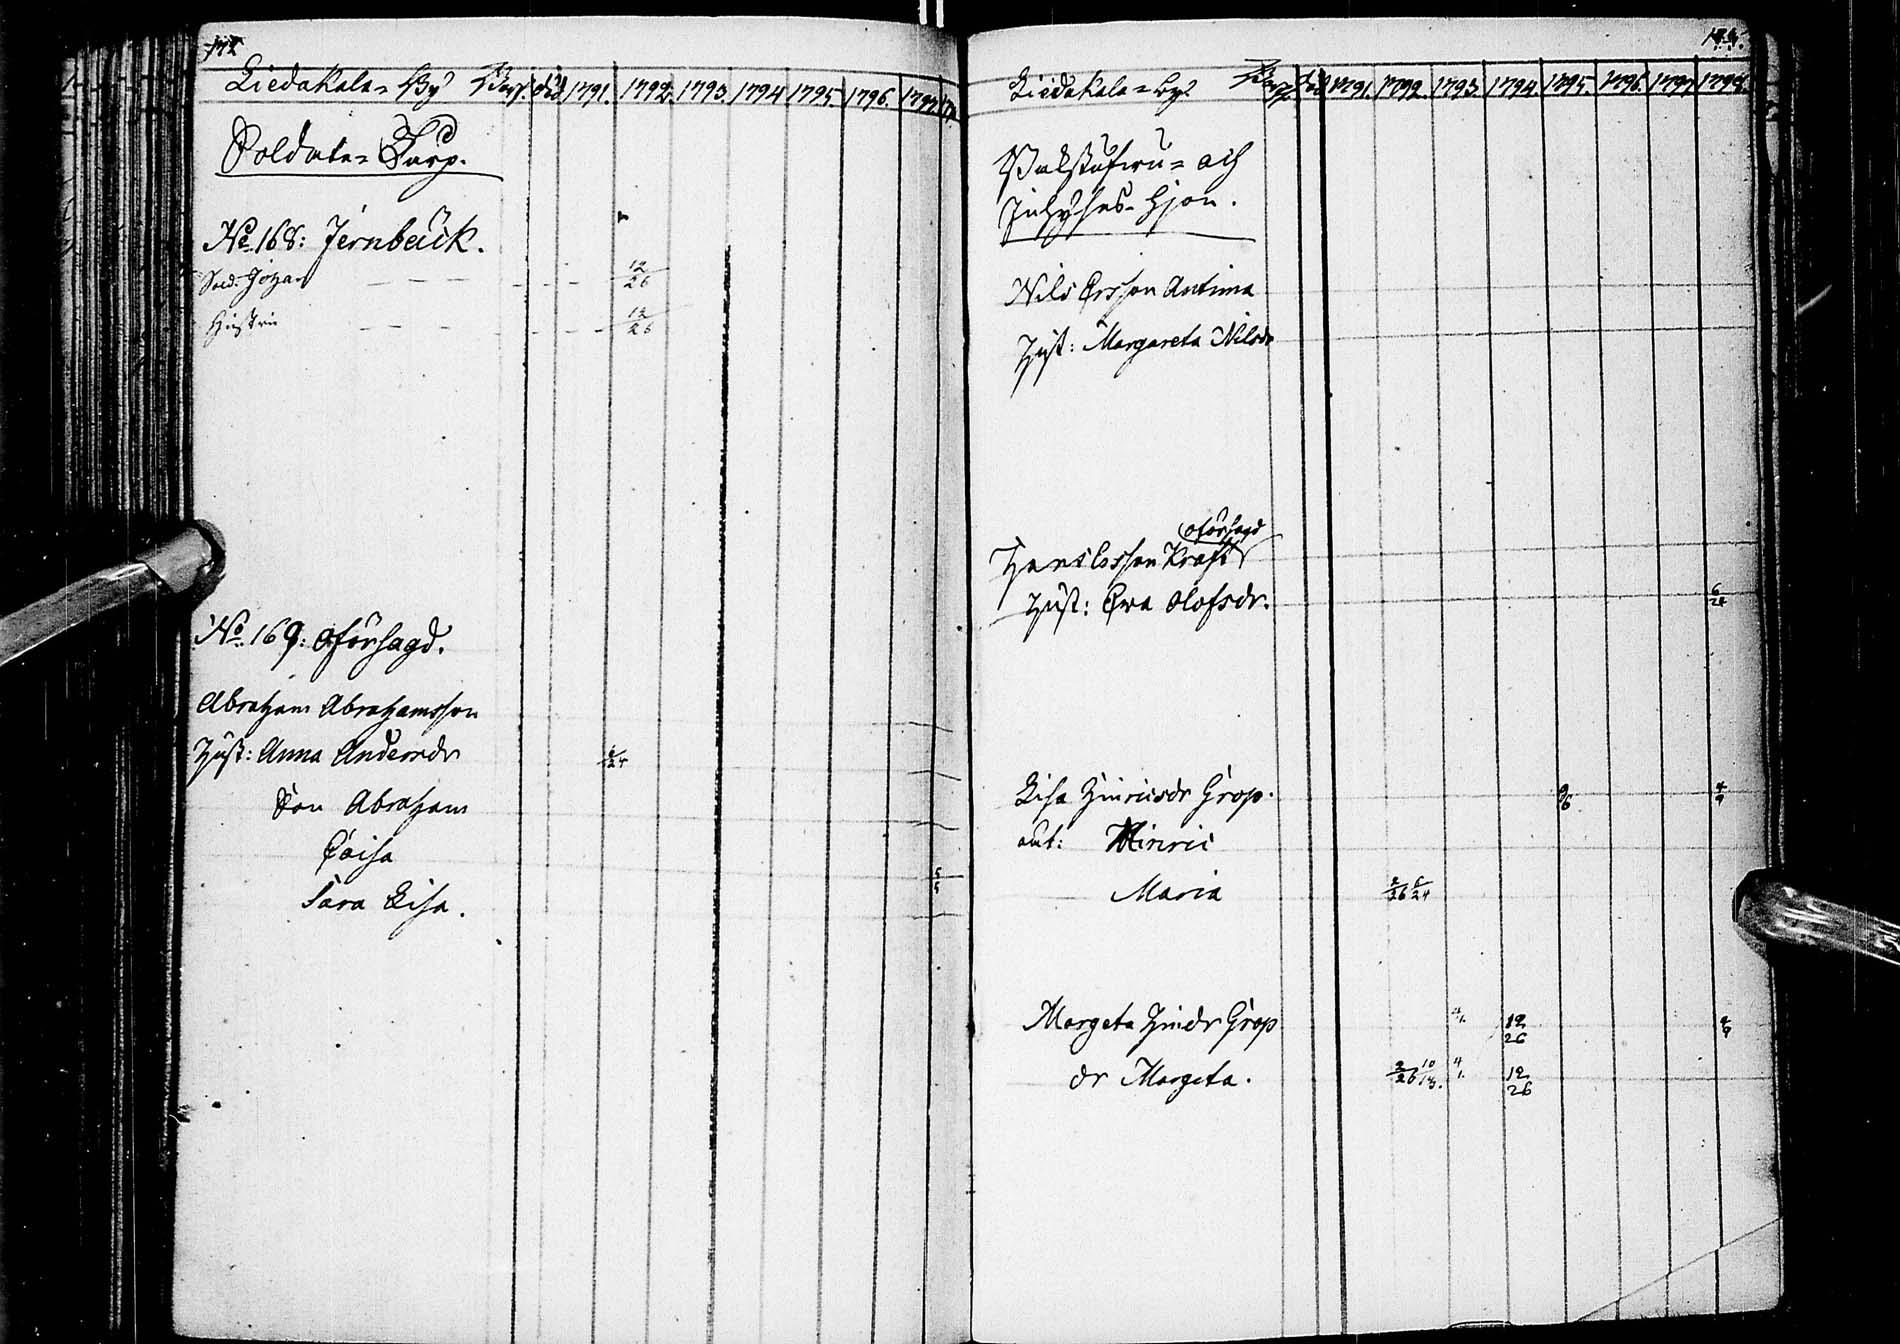 Liedakala-By Pers. did 1791. 1792. 1793. 1794 1795 1796. 1797
Soldate-Torp.
No 168: Jernbäck.
Sold: Johan 12/26
Hustru 12/26
No 169: Oförsagd.
Abraham Abrahamsson
Hust: Anna Andersdr
Son Abraham
Caisa 5/5
Sara Lisa.
Liedakala-By. 1791. 1792. 1793. 1794 1795. 1796. 1797 1798.
Backstufwu- och
Inhyses-hjon.
Nils Ersson Antima
Hust: Margareta Nilsdr
oförsagd
Kraft
Hust: Ewa Olofsdr. 6/24
Lisa Hinricsdr Grop. 4/9
out: Hinric
Maria 2/26 6/24
Margeta Hindr Grop 4/1. 12/26
dr Margeta. 2/26 10/13. 4/1. 12/26